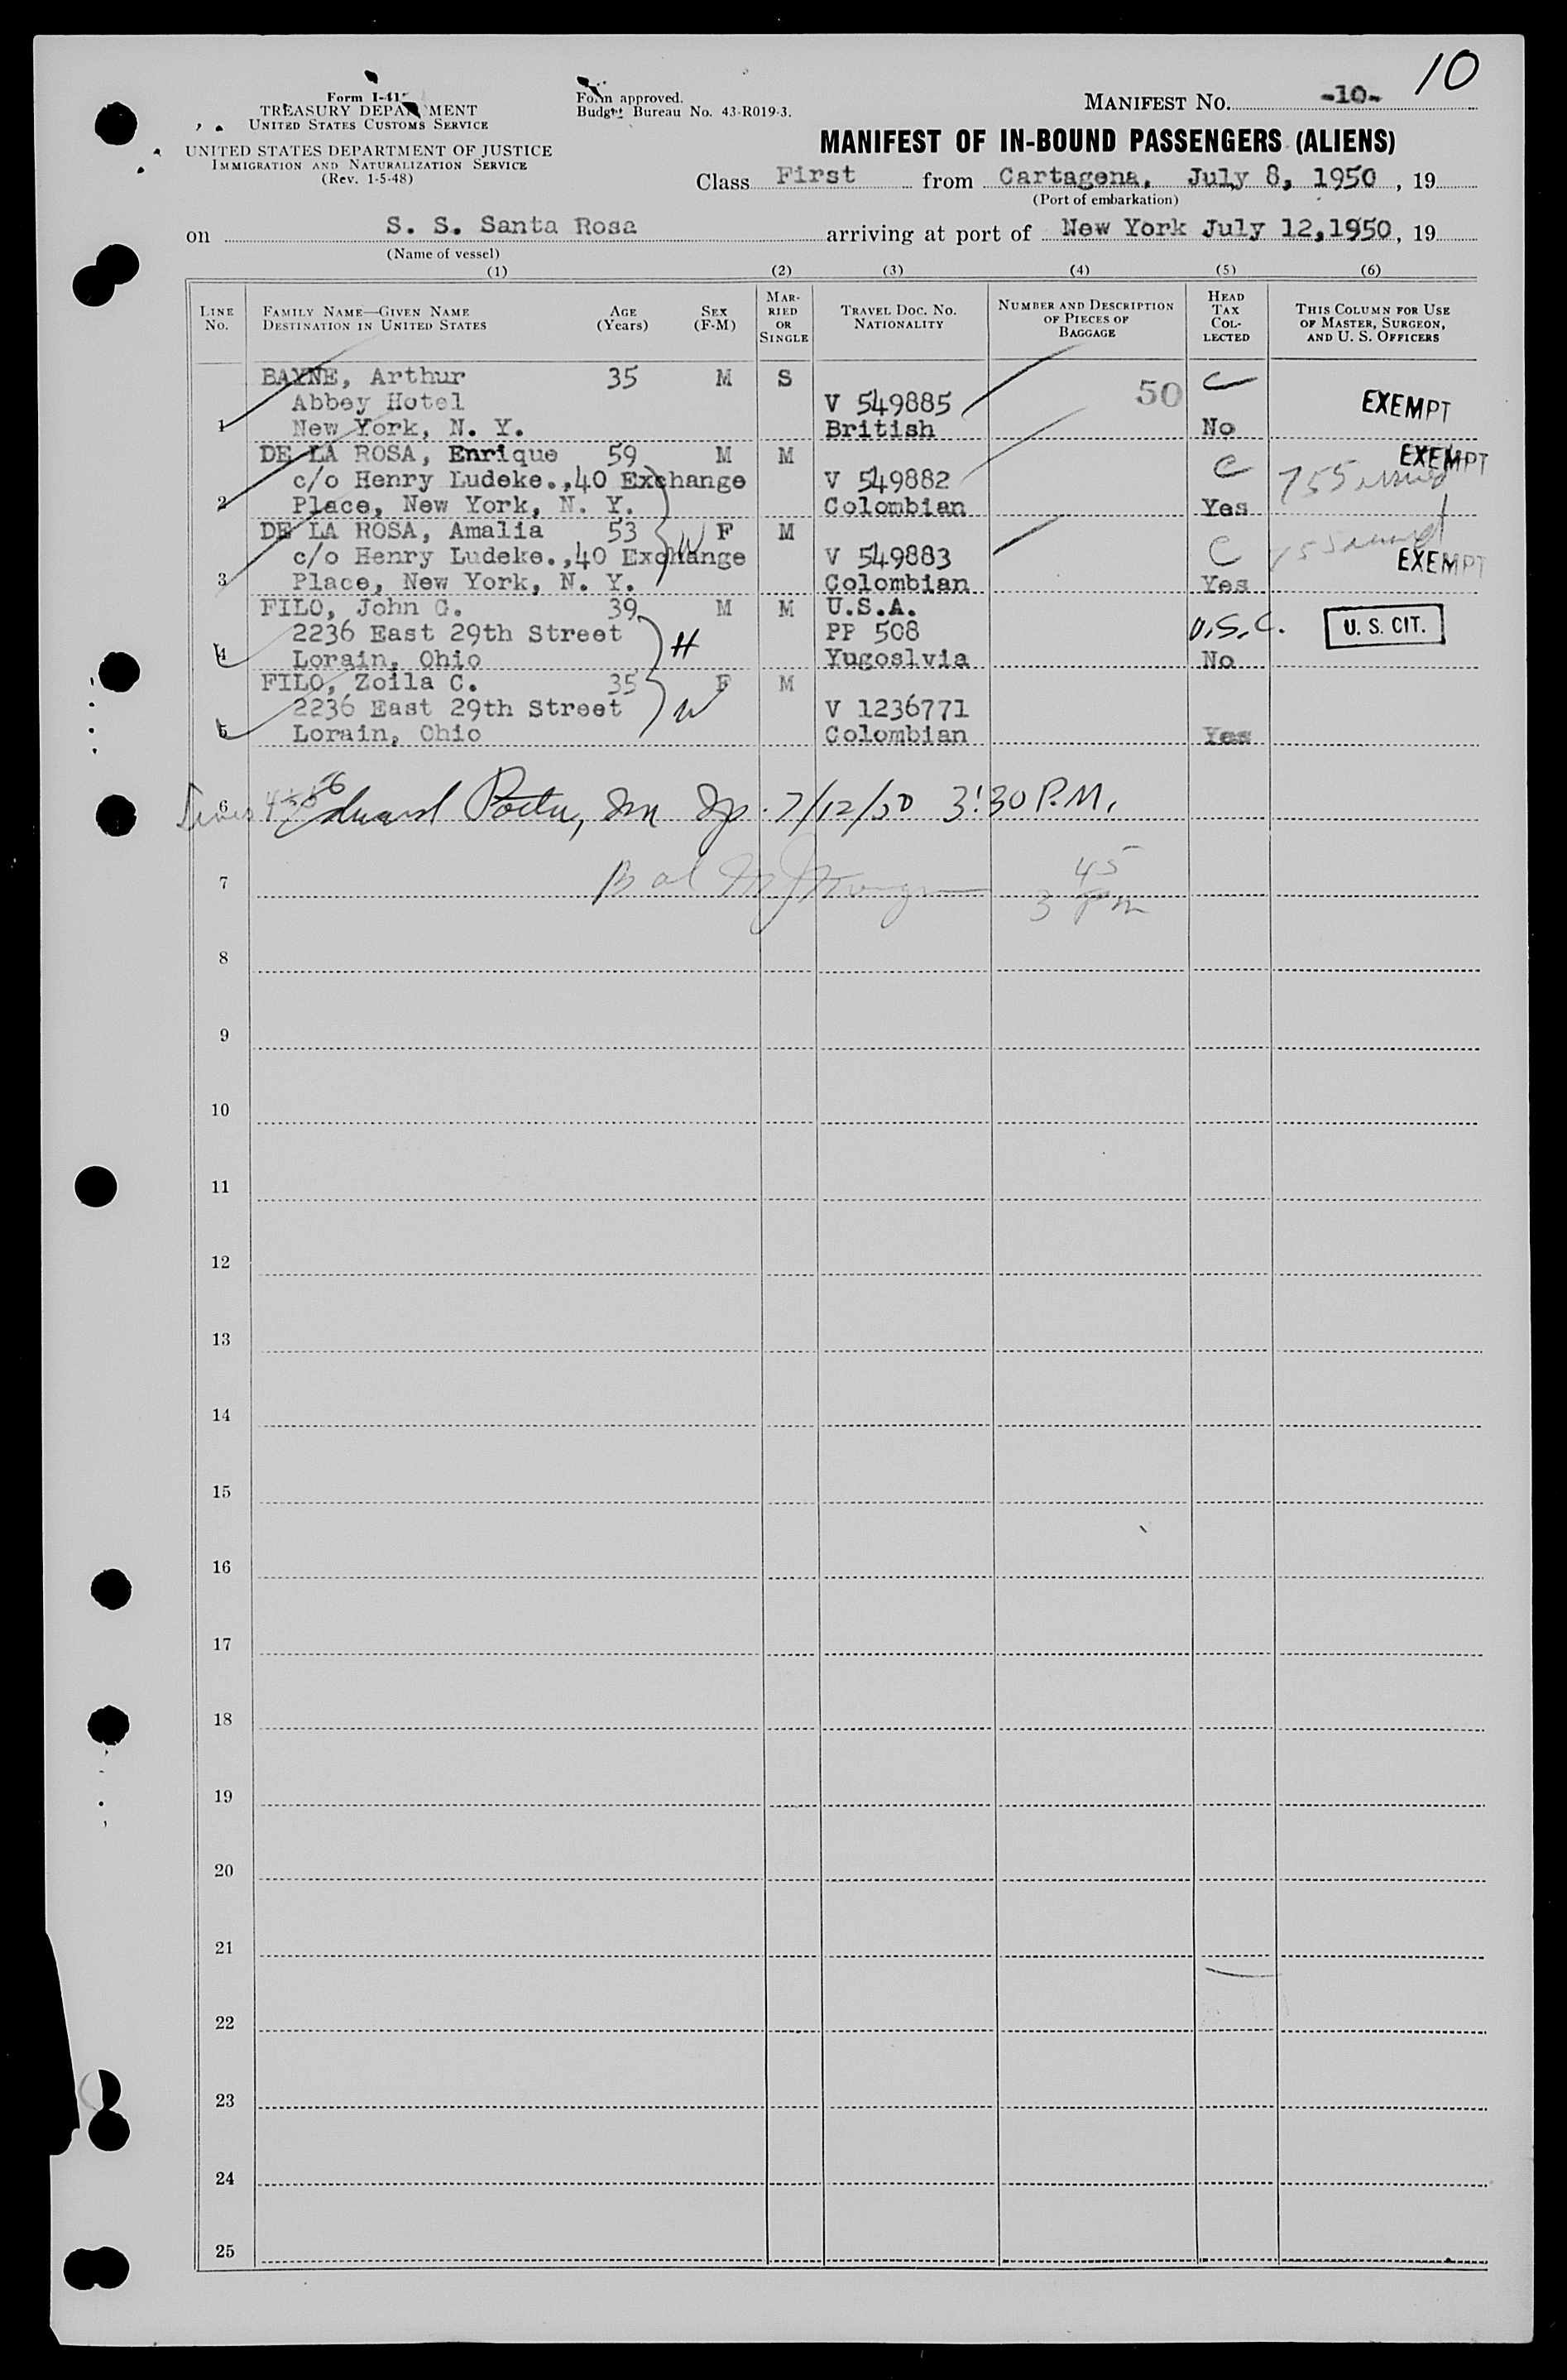 10
Form I-41
TREASURY DEPARTMENT
UNITED STATES CUSTOMS SERVICE
UNITED STATES DEPARTMENT OF JUSTICE
IMMIGRATION AND NATURALIZATION SERVICE
(Rev. 1-5-48)
Form approved.
Budget Bureau No. 43-R019-3.
MANIFEST No. -10-
MANIFEST OF IN-BOUND PASSENGERS (ALIENS)
Class First from Cartagena, July 8, 1950, 19
(Port of embarkation)
on S. S. Santa Rosa arriving at port of New York July 12,1950, 19
(Name of vessel)
(1) (2) (3) (4) (5) (6)
LINE No. FAMILY NAME—GIVEN NAME DESTINATION IN UNITED STATES AGE (Years) SEX (F-M) MARRIED OR SINGLE TRAVEL DOC. NO. NATIONALITY NUMBER AND DESCRIPTION OF PIECES OF BAGGAGE HEAD TAX COLLECTED THIS COLUMN FOR USE OF MASTER, SURGEON, AND U. S. OFFICERS
BAYNE, Arthur 35 M S C
Abbey Hotel V 549885 50 EXEMPT
1 New York, N. Y. British No
DE LA ROSA, Enrique 59 M M C EXEMPT
c/o Henry Ludeke.,40 Exchange V 549882 755 issued
2 Place, New York, N. Y. Colombian Yes
DE LA ROSA, Amalia 53 W F M
c/o Henry Ludeke.,40 Exchange V 549883 C 755 issued EXEMPT
3 Place, New York, N. Y. Colombian Yes
FILO, John G. 39 M M U.S.A.
2236 East 29th Street H PP 508 U.S.C. U. S. CIT.
4 Lorain, Ohio Yugoslvia No
FILO, Zoila C. 35 F M
2236 East 29th Street W V 1236771
5 Lorain, Ohio Colombian Yes
6 Edward 7/12/50 3:30 P.M.
7 3 45 Pm
8
9
10
11
12
13
14
15
16
17
18
19
20
21
22
23
24
25